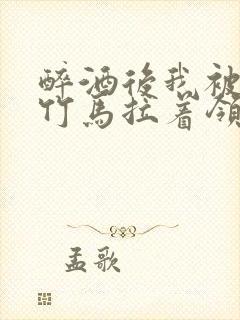 醉酒後我被
竹馬拉着領
孟歌